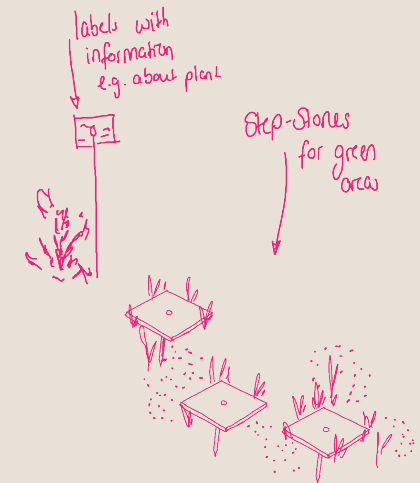 labels with
information
e.g. about plant
Step-Stones
for green
areas